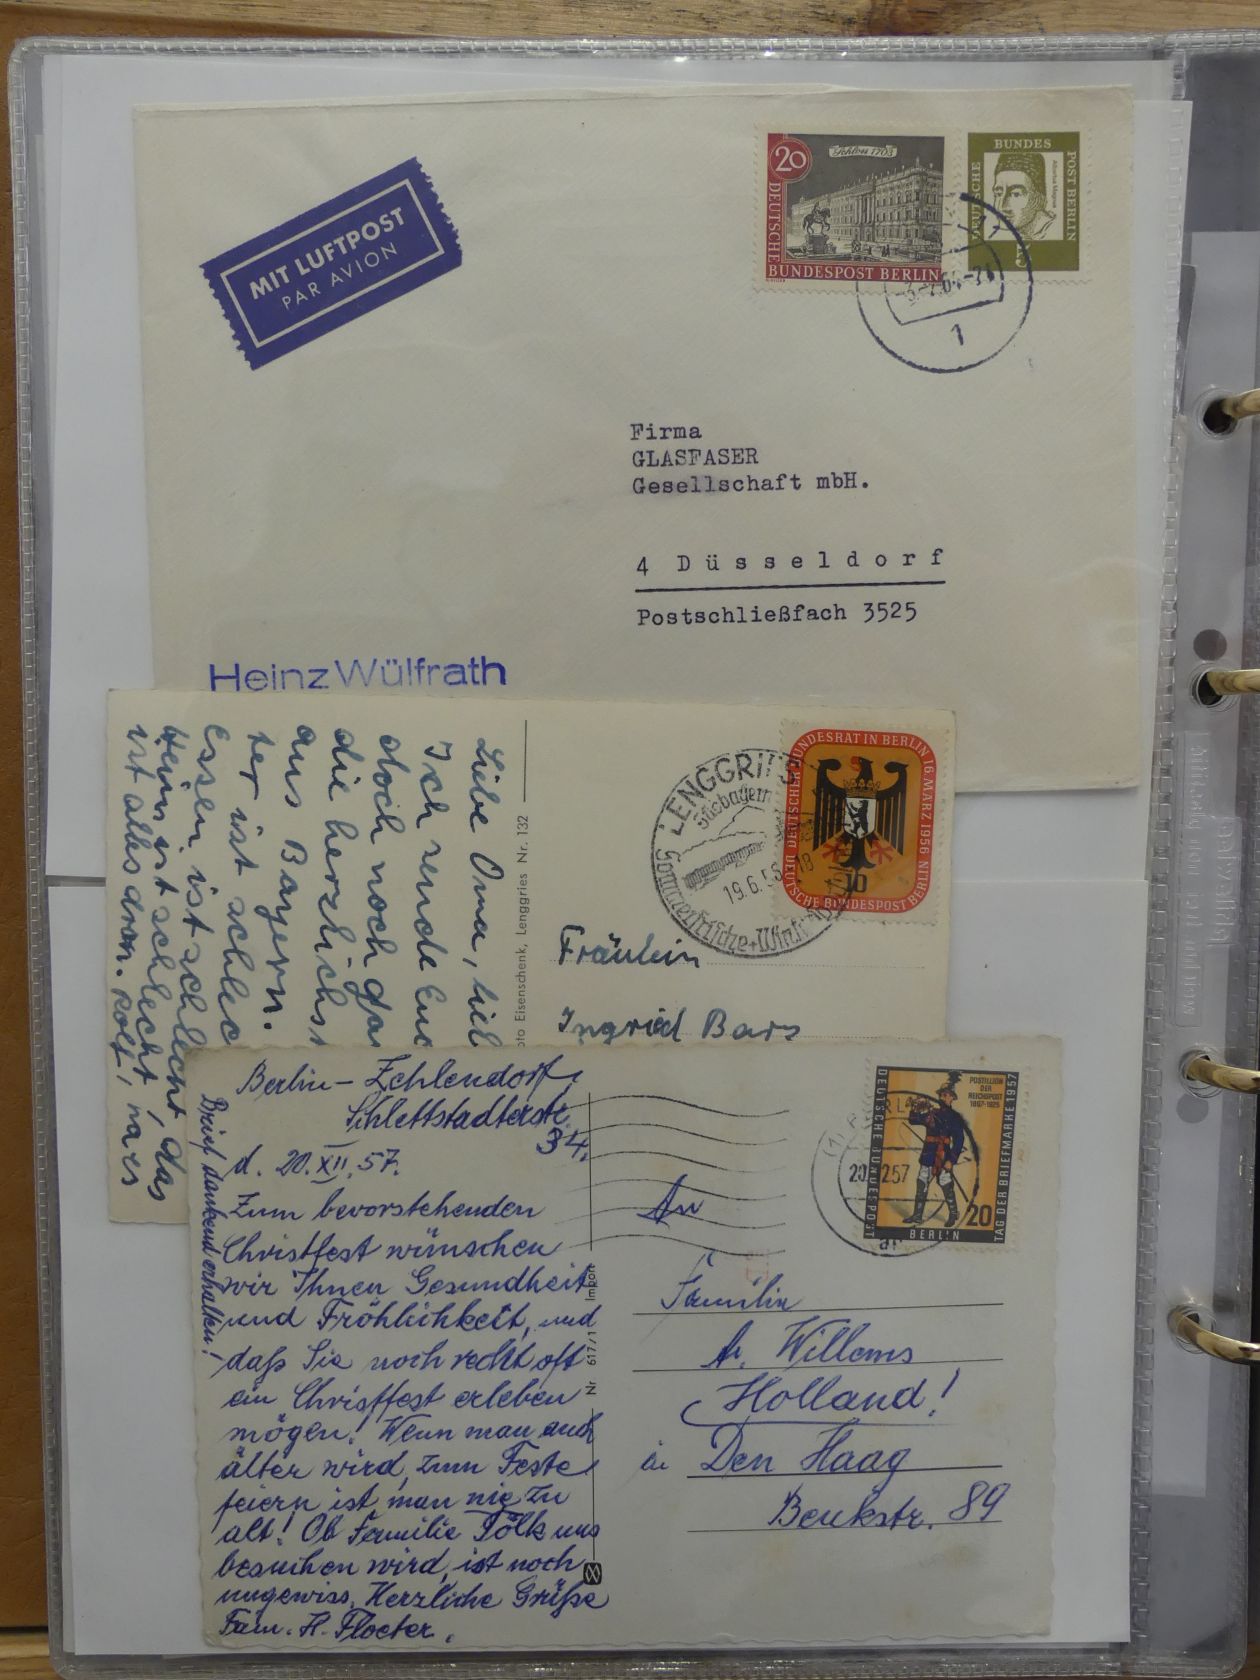 MIT LUFTPOST
PAR AVION
20
Schloss 1703
DEUTSCHE
BUNDESPOST BERLIN
BUNDES
POST BERLIN
DEUTSCHE
Albertus Magnus
5
1
Firma
GLASFASER
Gesellschaft mbH.
4 Düsseldorf
Postschließfach 3525
Heinz Wülfrath
Liebe Oma,
Ich sende Euc
doch noch
die herzlichs
aus Bayern.
ter ist schlec
Essen ist schlecht, das
Heim ist schlecht,
ist alles dran. Rolf,
oto Eisenschenk, Lenggries Nr. 132
LENGGRIES
Südbayern
19.6.56-18
Sommerfrische + Wint
DEUTSCHER BUNDESRAT IN BERLIN 16. MÄRZ 1956
10
DEUTSCHE BUNDESPOST BERLIN
Fräulein
Ingried Bars
Berlin-Zehlendorf,
Schlettstadterstr.
34.
d. 20.XII.57.
Zum bevorstehenden
Christfest wünschen
wir Ihnen Gesundheit
und Fröhlichkeit, und
daß Sie noch recht oft
ein Christfest erleben
mögen! Wenn man auch
älter wird, zum Feste
feiern ist man nie zu
alt! Ob Familie Tölk uns
besuchen wird, ist noch
ungewiss. Herzliche Grüße
Fam. H. Floeter.
Brief dankend erhalten!
Nr 617/1 Import
POSTILLION
DER
REICHSPOST
1867-1925
DEUTSCHE BUNDESPOST
BERLIN
TAG DER BRIEFMARKE 1957
20
An
Familie
A. Willems
Holland!
in Den Haag
Beukstr. 89